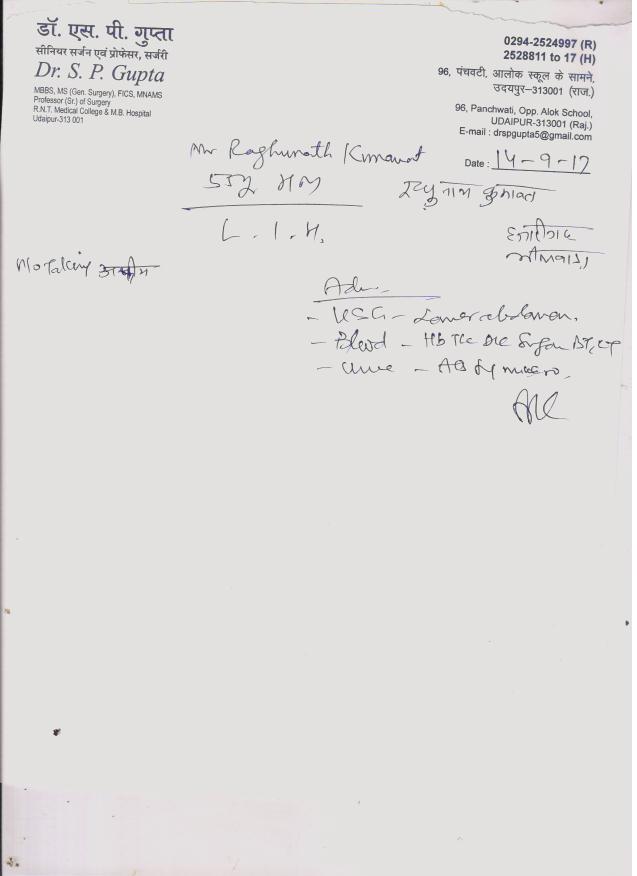 डॉ. एस. पी. गुप्ता
सीनियर सर्जन एवं प्रोफेसर, सर्जरी
Dr. S. P. Gupta
MBBS, MS (Gen. Surgery), FICS, MNAMS
Professor (Sr.) of Surgery
R.N.T. Medical College & M.B. Hospital
Udaipur-313 001
0294-2524997 (R)
2528811 to 17 (H)
96, पंचवटी, आलोक स्कूल के सामने,
उदयपुर–313001 (राज.)
96, Panchwati, Opp. Alok School,
UDAIPUR-313001 (Raj.)
E-mail : drspgupta5@gmail.com
Date : 14-9-17
Mr Raghunath Kumawat
कुमावत
L.I.H.
Taking
Adv.
- USG - Lower abdomen.
- Blood - Hb TLC DLC Sugar BT, CT
- Urine - micro.